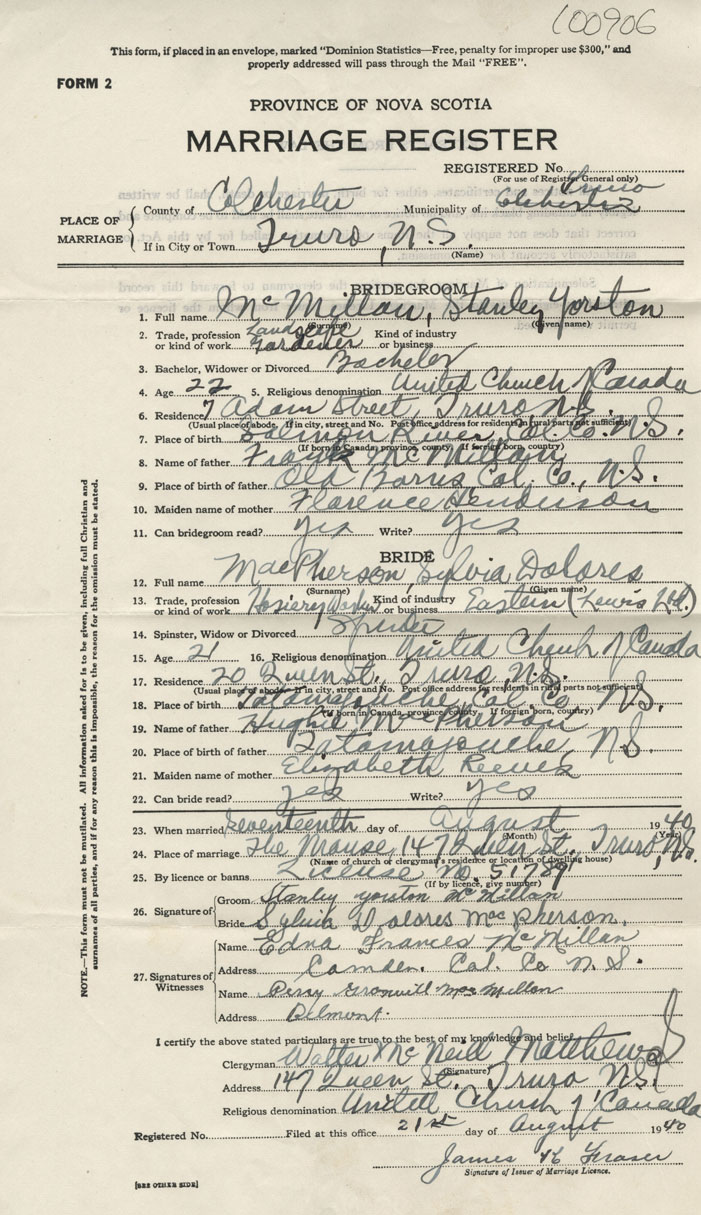 100906
This form, if placed in an envelope, marked "Dominion Statistics—Free, penalty for improper use $300," and
properly addressed will pass through the Mail "FREE".
FORM 2
PROVINCE OF NOVA SCOTIA
MARRIAGE REGISTER
REGISTERED No.
(For use of Registrar General only)
PLACE OF MARRIAGE
County of Colchester Municipality of Truro Colchester
If in City or Town Truro, N.S.
(Name)
BRIDEGROOM
1. Full name McMillan, Stanley Yorston
(Surname) (Given name)
2. Trade, profession or kind of work Landscape Gardener Kind of industry or business
3. Bachelor, Widower or Divorced Bachelor
4. Age 22 5. Religious denomination United Church of Canada
6. Residence 7 Adam Street, Truro N.S.
(Usual place of abode. If in city, street and No. Post office address for residents in rural parts not sufficient)
7. Place of birth Salmon River, Col. Co. N.S.
(If born in Canada, province, county. If foreign born, country)
8. Name of father Frank McMillan
9. Place of father Old Barns Col. Co., N.S.
10. Maiden name of mother Florence Henderson
11. Can bridegroom read? yes Write? yes
BRIDE
12. Full name MacPherson, Sylvia Dolores
(Surname) (Given name)
13. Trade, profession or kind of work Hosiery Kind of industry or business Eastern (Lewis Ltd.)
14. Spinster, Widow or Divorced Spinster
15. Age 21 16. Religious denomination United Church of Canada
17. Residence 20 Queen St., Truro, N.S.
(Usual place of abode. If in city, street and No. Post office address for residents in rural parts not sufficient)
18. Place of birth Tatamagouche Col. Co. N.S.
(If born in Canada, province, county. If foreign born, country)
19. Name of father Hughie McPherson
20. Place of birth of father Tatamagouche, N.S.
21. Maiden name of mother Elizabeth Reeves
22. Can bride read? yes Write? yes
23. When married Seventeenth day of August 1940
(Month) (Year)
24. Place of marriage The Manse, 147 Queen St. Truro, N.S.
(Name of church or clergyman's residence or location of dwelling house)
25. By licence or banns License No. 51789
(If by licence, give number)
26. Signature of
Groom Stanley yorston McMillan
Bride Sylvia Dolores MacPherson
27. Signatures of Witnesses
Name Edna Frances McMillan
Address Camden. Col. Co N. S.
Name Percy MacMillan
Address Belmont.
I certify the above stated particulars are true to the best of my knowledge and belief.
Clergyman Walter McNeill Matthews
(Signature)
Address 147 Queen St. Truro N.S.
Religious denomination United Church of Canada
Registered No. Filed at this office 21st day of August 1940
James Fraser
Signature of Issuer of Marriage Licence.
[SEE OTHER SIDE]
NOTE.—This form must not be mutilated. All information asked for is to be given, including full Christian and
surnames of all parties, and if for any reason this is impossible, the reason for the omission must be stated.